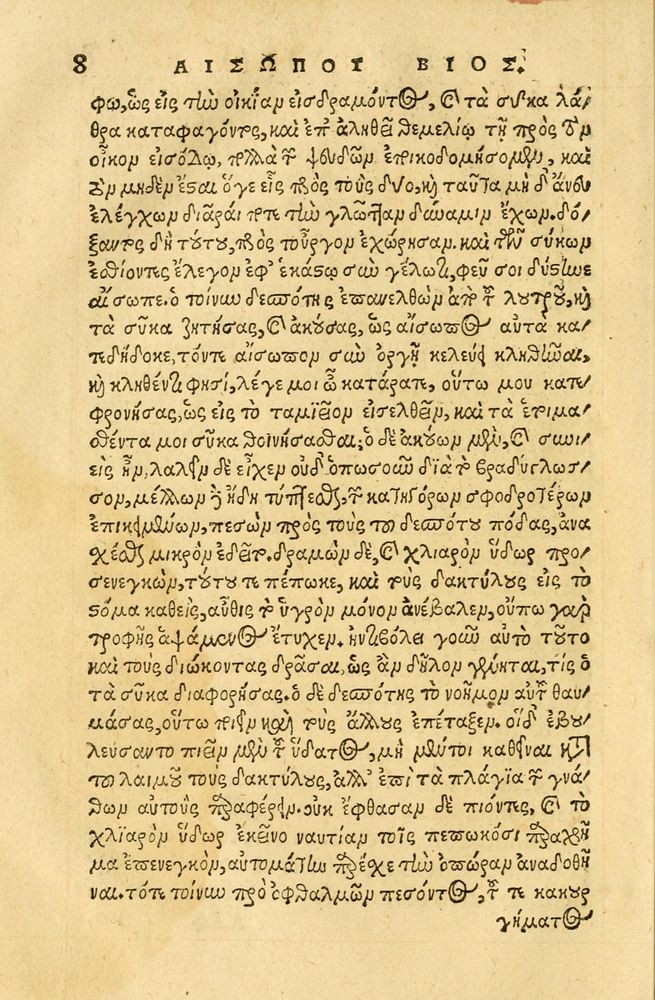 8 ΑΙΣΩΠΟΥ ΒΙΟΣ.
φω, ὡς εἰς τὴν οἰκίαν εἰσδραμόντος, καὶ τὰ σῦκα λά-
θρα καταφαγόντος, καὶ ἐπ' ἀληθεῖ θεμελίῳ τῇ πρὸς τὸν
οἶκον εἰσόδῳ, πολλὰ τῶν ψευδῶν ἐπικοδομήσομεν, καὶ
οὐ μηδὲν ἔσαι ὅγε εἷς πρὸς τοὺς δύο, καὶ ταῦτα μὴ δ' ἄνευ
ἐλέγχων διᾶραι ποτε τὴν γλῶτταν δύναμιν ἔχων. δό-
ξαντος δὴ τούτου, πρὸς τοὖργον ἐχώρησαν. καὶ τῶν σύκων
ἐσθίοντες ἔλεγον ἐφ' ἑκάστῳ σὺν γέλωτι, φεῦ σοι δύστηνε
αἴσωπε. ὁ τοίνυν δεσπότης ἐπανελθὼν ἀπὸ τοῦ λουτροῦ, καὶ
τὰ σῦκα ζητήσας, καὶ ἀκούσας, ὡς αἴσωπος αὐτὰ κα-
τεδήδοκε, τόν τε αἴσωπον σὺν ὀργῇ κελεύει κληθῆναι,
καὶ κληθέντι φησί, λέγε μοι ὦ κατάρατε, οὕτω μου κατε-
φρόνησας, ὡς εἰς τὸ ταμιεῖον εἰσελθεῖν, καὶ τὰ ἑτοιμα-
σθέντα μοι σῦκα θοινήσασθαι; ὁ δὲ ἀκούων μὲν, καὶ συνι-
εὶς ἦν, λαλεῖν δὲ εἶχεν οὐδ' ὁπωσοῦν διὰ τὸ βραδύγλωσ-
σον, μέλλων δὲ ἤδη τύπτεσθαι, τῶν κατηγόρων σφοδροτέρων
ἐπικειμένων, πεσὼν πρὸς τοὺς τοῦ δεσπότου πόδας, ἀνα-
σχέσθαι μικρὸν ἐδεῖτο. δραμὼν δὲ, καὶ χλιαρὸν ὕδωρ προ-
σενεγκὼν, τοῦτό τε πέπωκε, καὶ τοὺς δακτύλους εἰς τὸ
στόμα καθεὶς, αὖθις τὸ ὑγρὸν μόνον ἀνέβαλεν, οὔπω γὰρ
τροφῆς ἁψάμενος ἔτυχεν. ἠντιβόλει γοῦν αὐτὸ τοῦτο
καὶ τοὺς διώκοντας δρᾶσαι, ὡς ἂν δῆλον γένηται, τίς ὁ
τὰ σῦκα διαφορήσας. ὁ δὲ δεσπότης τὸ νοῆμον αὐτοῦ θαυ-
μάσας, οὕτω ποιεῖν καὶ τοὺς ἄλλους ἐπέταξεν. οἱ δ' ἐβου-
λεύσαντο πιεῖν μὲν τοῦ ὕδατος, μὴ μέντοι καθεῖναι κατὰ
τοῦ λαιμοῦ τοὺς δακτύλους, ἀλλ' ἐπὶ τὰ πλάγια τῶν γνά-
θων αὐτοὺς παραφέρειν. οὐκ ἔφθασαν δὲ πιόντες, καὶ τὸ
χλιαρὸν ὕδωρ ἐκεῖνο ναυτίαν τοῖς πεπωκόσι παραχρῆ-
μα ἐπενεγκὸν, αὐτομάτην παρέσχε τὴν ὀπώραν ἀναδοθῆ-
ναι. τότε τοίνυν πρὸ ὀφθαλμῶν πεσόντος, τοῦ τε κακουρ-
γήματος